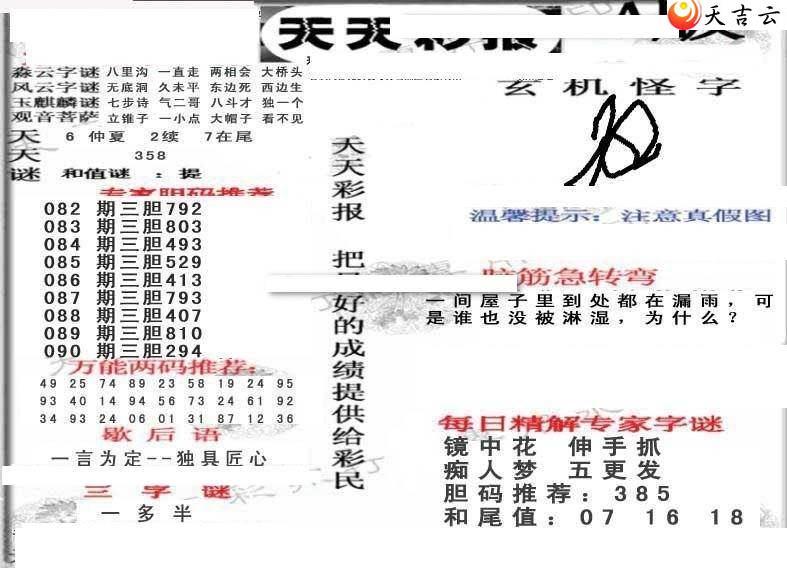 天天彩报
天吉云
森云字谜 八里沟 一直走 两相会 大桥头
风云字谜 无底洞 久未平 东边死 西边生
玉麒麟谜 七步诗 气二哥 八斗才 独一个
观音菩萨 立锥子 一小点 大帽子 看不见
天 6 仲夏 2续 7在尾
天 358
谜 和值谜 : 提
专家胆码推荐
082 期三胆792
083 期三胆803
084 期三胆493
085 期三胆529
086 期三胆413
087 期三胆793
088 期三胆407
089 期三胆810
090 期三胆294
万能两码推荐:
49 25 74 89 23 58 19 24 95
93 40 14 94 56 73 24 61 92
34 93 24 06 01 31 87 12 36
歇后语
一言为定--独具匠心
三字谜
一多半
天天彩报 把 好的成绩提供给彩民
玄机怪字
温馨提示: 注意真假图
脑筋急转弯
一间屋子里到处都在漏雨，可
是谁也没被淋湿，为什么？
每日精解专家字谜
镜中花 伸手抓
痴人梦 五更发
胆码推荐: 385
和尾值: 07 16 18